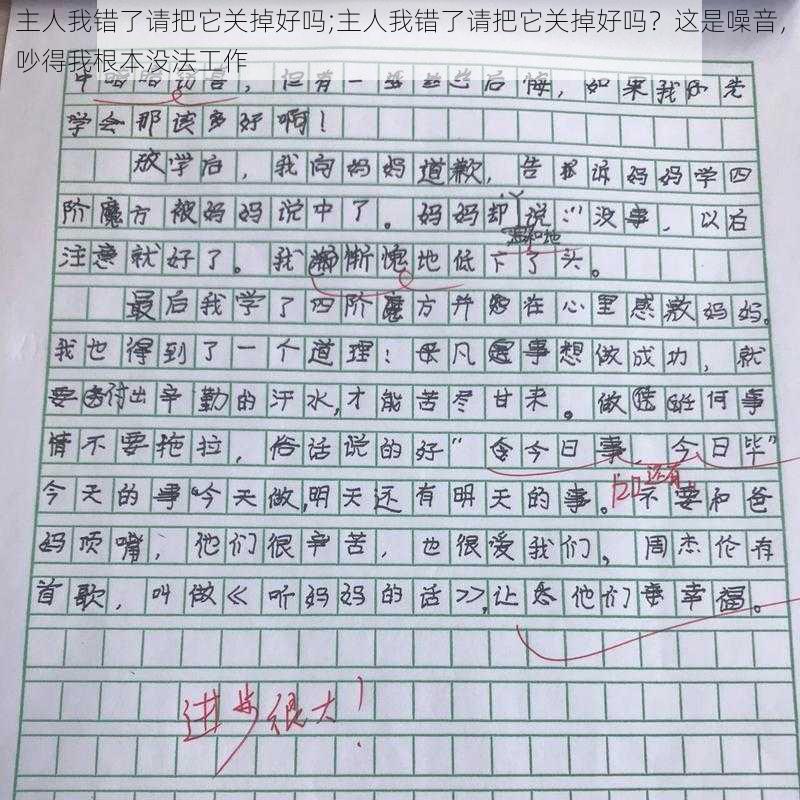 主人我错了请把它关掉好吗;主人我错了请把它关掉好吗？这是噪音，
吵得我根本没法工作
中暗暗窃喜，但有一些些后悔，如果我先
学会那该多好啊！
放学后，我向妈妈道歉，告诉妈妈学四
阶魔方被妈妈说中了。妈妈却说：“没事，以后
温和地
注意就好了。我惭愧地低下了头。
最后我学了四阶魔方并在心里感激妈妈。
我也得到了一个道理：毕凡事想做成功，就
要付出辛勤的汗水，才能苦尽甘来。做任何事
情不要拖拉，俗话说的好“今日事，今日毕”
今天的事今天做，明天还有明天的事。不要和爸
还有
妈顶嘴，他们很辛苦，也很爱我们。周杰伦有
首歌，叫做《听妈妈的话》，让他们幸福。
进步很大！